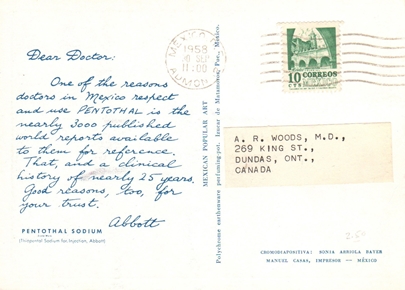 Dear Doctor:
One of the reasons
doctors in Mexico respect
and use PENTOTHAL is the
nearly 3000 published
world reports available
to them for reference.
That, and a clinical
history of nearly 25 years.
Good reasons, too, for
your trust.
Abbott
PENTOTHAL SODIUM
(Thiopental Sodium for Injection, Abbott)
MEXICAN POPULAR ART
Polychrome earthenware perfuming-pot. Izucar de Matamoros, Pue. Mexico.
MEXICO
1958
SEP
11:00
10 CORREOS
CTS
A. R. WOODS, M.D.,
269 KING ST.,
DUNDAS, ONT.,
CANADA
CROMODIAPOSITIVA: SONIA ARRIOLA BAYER
MANUEL CASAS, IMPRESOR — MÉXICO